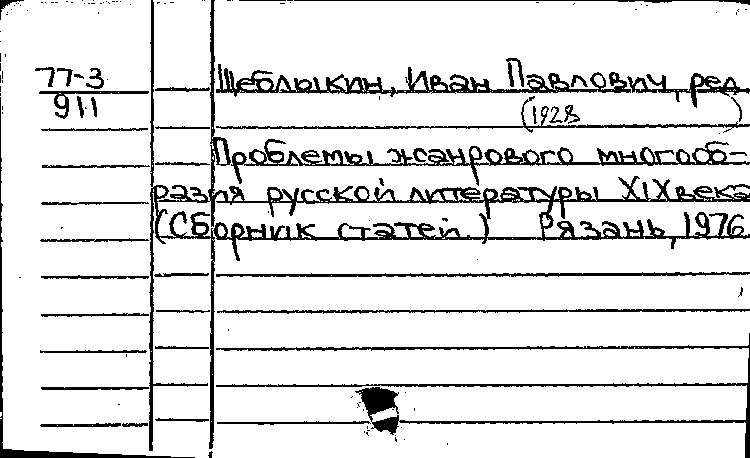 77-3
911
Щеблыкин, Иван Павлович, ред.
(1928 )
Проблемы жанрового многооб-
разия русской литературы XIX века
(Сборник статей.) Рязань, 1976